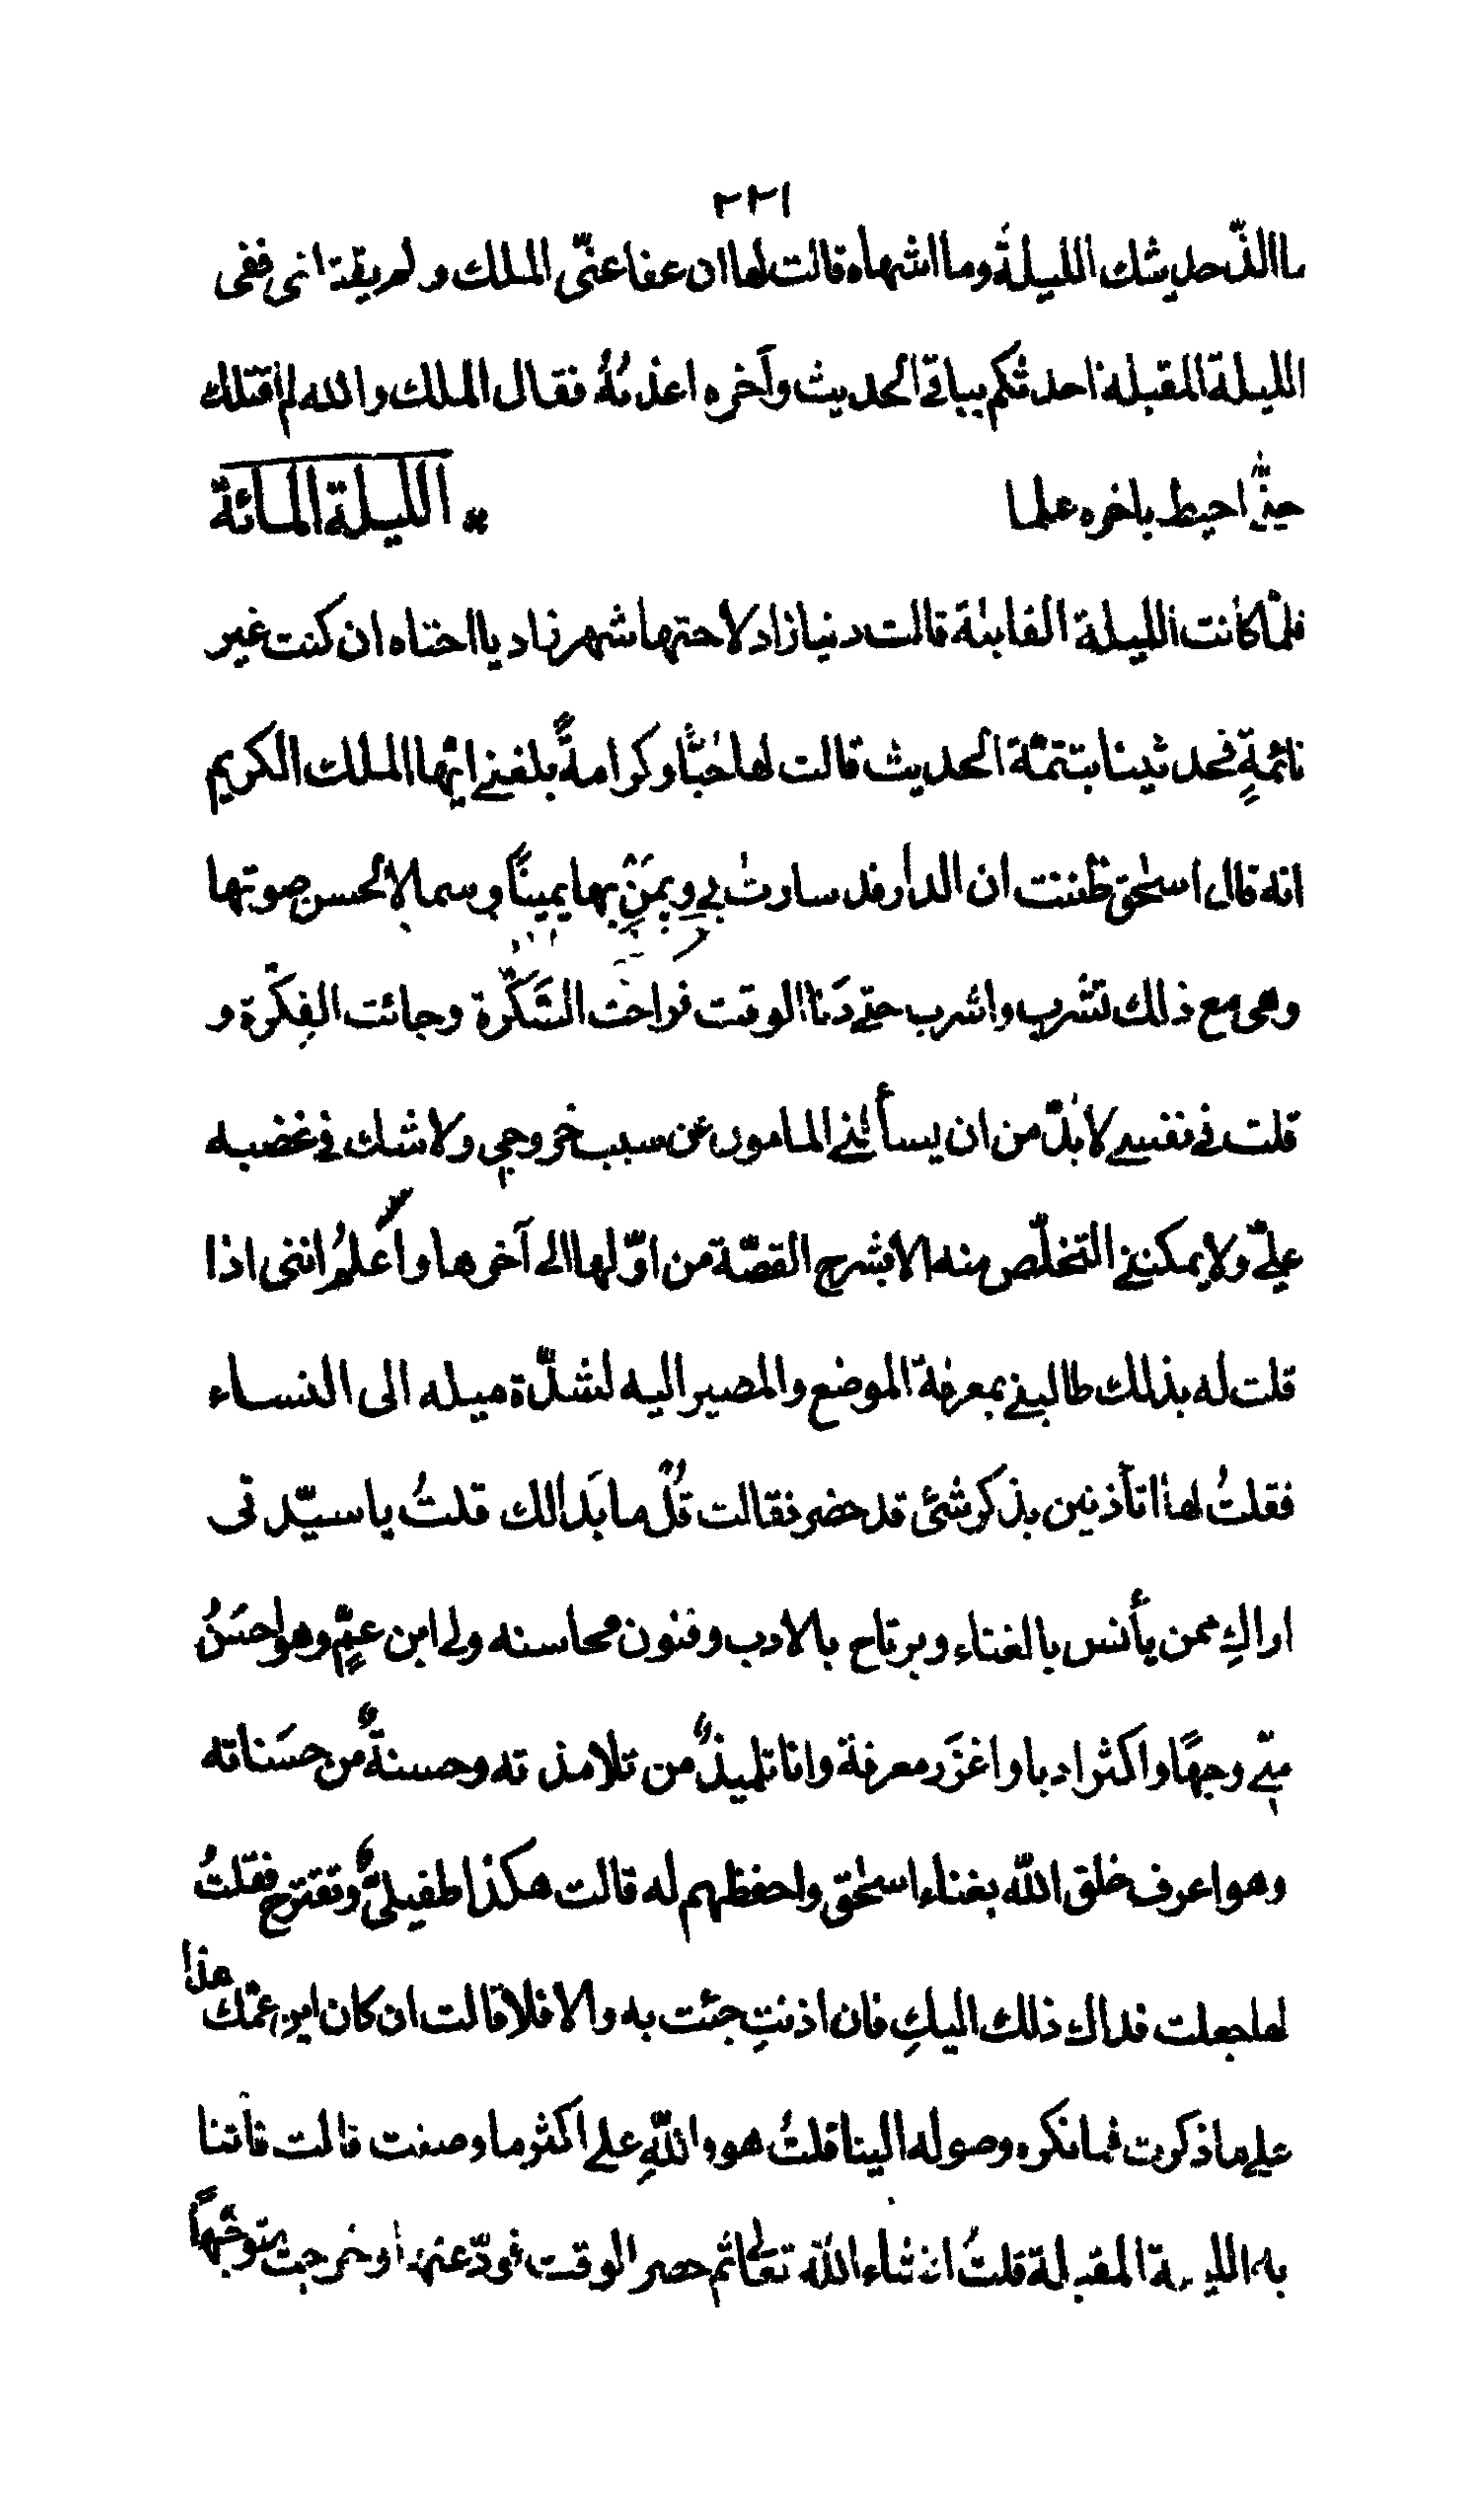 ٣٢١
ما الذّ حديثك الليلةَ وما اشهاه قالت لها ان عفا عنّى الملك ولم يقتلنى ففى
الليلة المقبلة احدثكم بباقى الحديث وآخره اعذبُهُ فقال الملك والله لم اقتلك
حتّٰ احيط بآخره علما * الليلة المائة
فلمّا كانت الليلة القابلة قالت دنيازاد لاختها شهرزاد يا اختاه ان كنت غير
نائمةٍ فحدثينا بتتمّة الحديث قالت لها حُبًّا وكرامةً بلغنى ايّها الملك الكريم
انه قال اسحٰق ظننت ان الدار قد سارت بى وبمَنْ بها يمينًا وشمالا لحسن صوتها
وهى مع ذلك تشرب واشرب حتى دَنَا الوقت فراحَت السَّكْرة وجائت الفِكْرة و
قلت فى نفسى لا بُدّ من ان يسألنى المامون عن سبب خروجى ولا شك فى غضبه
علىّ ولا يمكننى التخلّص منه الا بشرح القصّة من اوّلها الى آخرها واَعْلَمُ اننى اذا
قلت له بذلك طالبنى بمعرفة الموضع والمصير اليه لشدّة ميله الى النساء
فقلتُ لها اتأذنين بذكر شئ قد حضر فقالت قُلْ ما بَدَا لك قلتُ يا سيّدتى
اراكِ ممن يأنس بالغناء ويرتاح بالادب وفنون محاسنه ولى ابن عمٍّ وهو احسَنُ
منّى وجهًا واكثر ادبا واغزَر معرفة وانا تلميذٌ من تلامذته وحسنةٌ من حسَناته
وهو اعرف خلق اللّه بغناء اسحٰق واحفظهم له قالت هكذا طفيلىٌّ وتقترح فقلتُ
لها جعلت فداك ذلك اليكِ فان اذنتِ جئت به والا فلا قالت ان كان ابن عمّك هذا
على ما ذكرت فما نكره وصوله الينا قلتُ هو واللّهِ على اكثر ما وصفت قالت فأتنا
به الليلة المقبلة قلتُ ان شاء اللّه تعالى ثم حضر الوقت فودّعتها وخرجت متوجّهًا